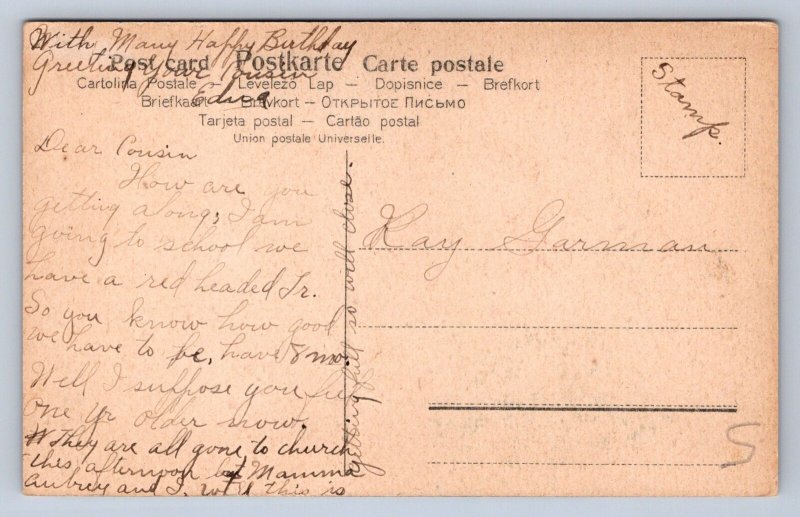 With Many Happy Birthday
Greeting Your Cousin
Edna
Post card Postkarte Carte postale
Cartolina Postale – Levelező Lap – Dopisnice – Brefkort
Briefkaart – Brevkort – Открытое Письмо
Tarjeta postal – Cartão postal
Union postale Universelle.
Stamp.
Dear Cousin
How are you
getting along, I am
going to school we
have a red headed Tr.
So you know how good
we have to be, have 8 mo.
Well I suppose you feel
One yr older now.
They are all gone to church
this afternoon but Mamma
Aubrey and I. well this is
getting full so will close.
Ray Garman
5